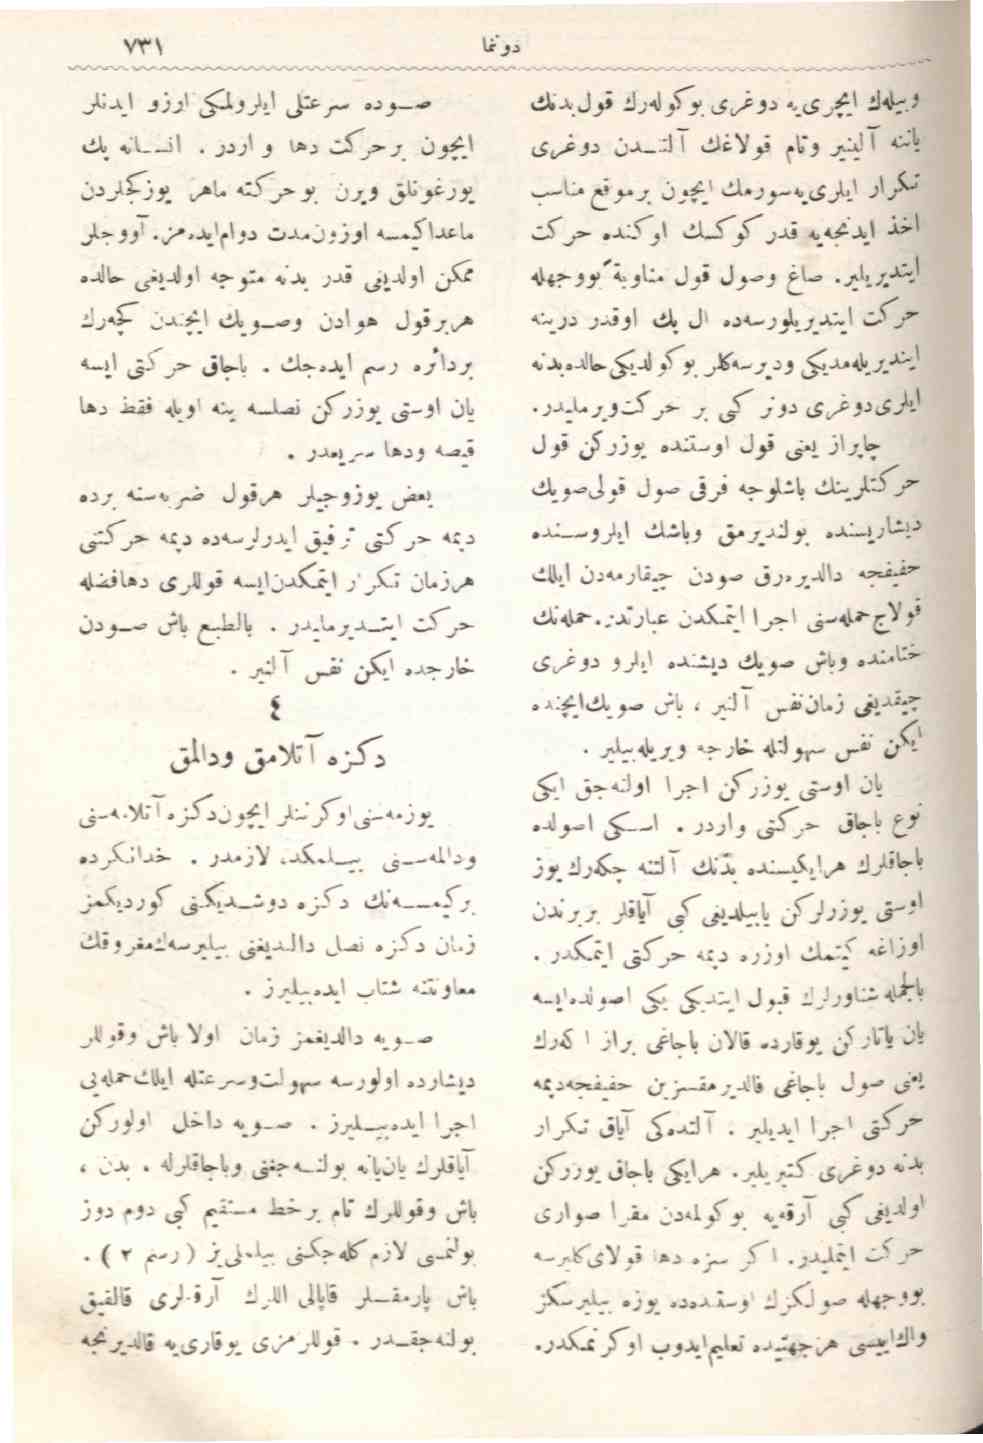 دونما
٧٣١
وبيله‌ك ايچری‌يه دوغری بوكوله‌رك قول بدنك
ياننه آلينير وتام قولاغك آلتـدن دوغری
تكرار ايلری‌يه سورمك ايچون برموقع مناسب
اخذ ايدنجه‌يه قدر كوكسك اوكنده حركت
ايتديريلير. صاغ وصول قول مناوبة بووجهله
حركت ايتديريلورسه‌ده ال پك اوقدر درينه
اينديريله‌مديكی وديرسه‌كلر بوكولديكی حالده بدنه
ايلری دوغری دونر كبی بر حركت ويرمايدر.
چاپراز يعنی قول اوستنده يوزركن قول
حركتلرينك باشلوجه فرقی صول قولی صويك
ديشاريسنده بولنديرمق وباشك ايلروسـنده
خفيفجه دالديره‌رق صودن چيقارمه‌دن ايلك
قولاج حمله‌سنی اجرا ايتمكدن عبارتدر. حمله‌نك
ختامنده وباش صويك ديشنده ايلرو دوغری
چيقديغی زمان نفس آلنير ، باش صويك ايچنده
ايكن نفس سهولتله خارجه ويريله‌بيلير .
يان اوستی يوزركن اجرا اولنه‌جق ايكی
نوع باجاق حركتی واردر . اسـكی اصولده
باجاقلرك هرايكيسنده بدنك آلتنه چكه‌رك يوز
اوستی يوزرلركن ياپيلديغی كبی آياقلر بربرندن
اوزاغه كيتمك اوزره ديمه حركتی ايتمكدر .
بالجمله شناورلرك قبول ايتديكی يكی اصولده‌ايسه
يان ياتاركن يوقارده قالان باجاغی براز اكه‌رك
يعنی صول باجاغی قالديرمقسزين خفيفجه ديمه
حركتی اجرا ايديلير . آلتده‌كی آياق تكرار
بدنه دوغری كتيريلير. هرايكی باجاق يوزركن
اولديغی كبی آرقه‌يه بوكولمه‌دن مقرا صواری
حركت ايتمليدر. اكر سزه دها قولای كليرسه
بووجهله صولكزك اوستنده‌ده يوزه بيليرسكز
واك اييسی هرجهتيده تعليم ايدوب اوكرنمكدر.
صـوده سرعتلی ايلرولمكی ارزو ايدنلر
ايچون برحركت دها واردر . انسـانه پك
يورغونلق ويرن بوحركته ماهر يوزكجلردن
ماعداكيمسه اوزون مدت دوام ايده‌مز. آووجلر
ممكن اولديغی قدر بدنه متوجه اولديغی حالده
هربرقول هوادن وصـويك ايچندن كچه‌رك
بردائره رسم ايده‌جك . باجاق حركتی ايسه
يان اوستی يوزركن نصلسه ينه اويله فقط دها
قيصه ودها سريعدر .
بعض يوزوجيلر هرقول ضربه‌سنه برده
ديمه حركتی ترفيق ايدرلرسه‌ده ديمه حركتنی
هرزمان تكرار ايتمكدن ايسه قوللری دهافضله
حركت ايتـديرمايدر . بالطبع باش صـودن
خارجده ايكن نفس آلنير .
٤
دكزه آتلامق ودالمق
يوزمه‌سنی اوكرننلر ايچون دكزه آتلامه‌سنی
ودالمه‌سـنی بيـلمكده لازمدر . خدانكرده
بركيمسـه‌نك دكزه دوشـديكنی كورديكمز
زمان دكزه نصل دالنديغنی بيليرسه‌ك مغروقك
معاونتنه شتاب ايده‌بيليرز .
صـويه دالديغمز زمان اولا باش وقوللر
ديشارده اولورسه سهولت وسرعتله ايلك حمله‌يی
اجرا ايده‌بيـليرز . صـويه داخل اولوركن
آياقلرك يان يانه بولنـه‌جغنی وباجاقلرله ، بدن ،
باش وقوللرك تام برخط مستقيم كبی دوم دوز
بولنمسی لازم كله‌جكنی بيلملی‌يز (رسم ٢) .
باش پارمقـلر قاپالی اللرك آرقه‌لری قالقيق
بولنه‌جقـدر . قوللرمزی يوقاری‌يه قالديرنجه